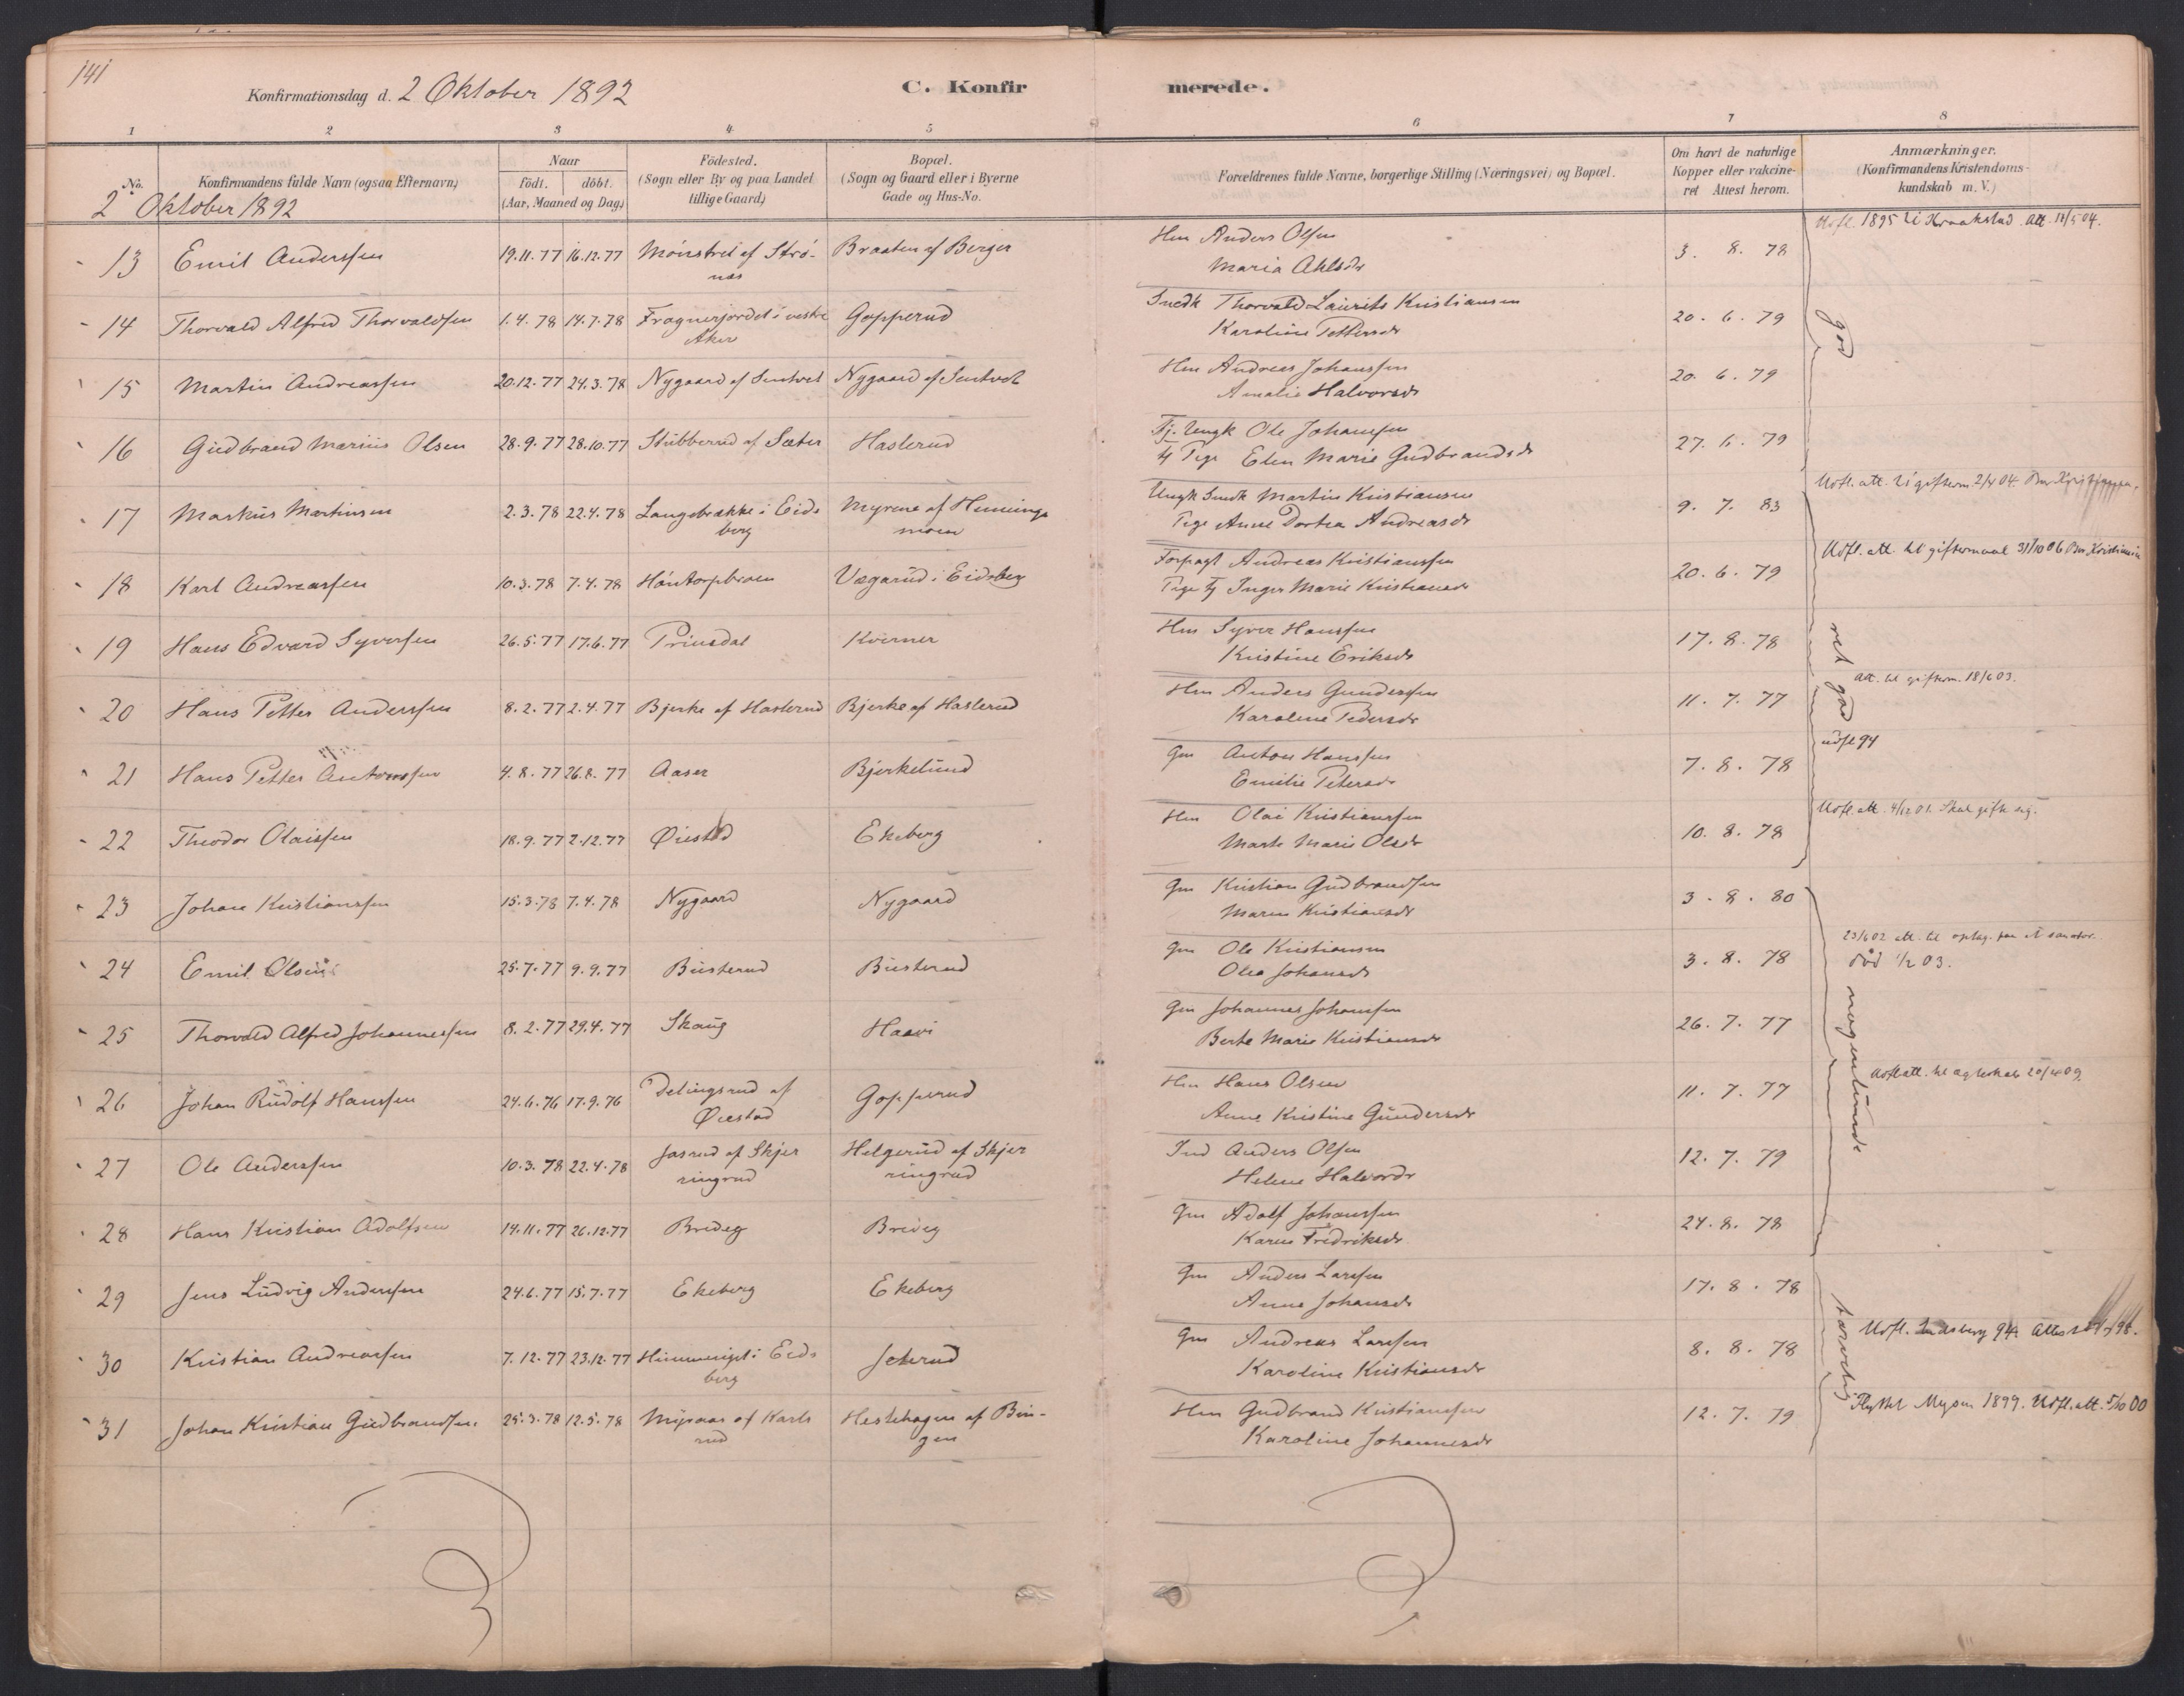 141
Konfirmationsdag d. 2 Oktober 1892
C. Konfir merede.
1 2 3 4 5 6 7 8
No.
Konfirmandens fulde Navn (ogsaa Efternavn)
Naar
födt. döbt.
(Aar, Maaned og Dag)
Födested.
(Sogn eller By og paa Landet
tillige Gaard)
Bopæl.
(Sogn og Gaard eller i Byerne
Gade og Hus-No.
Forældrenes fulde Navne, borgerlige Stilling (Næringsvei) og Bopæl.
Om havt de naturlige
Kopper eller vakcine-
ret Attest herom.
Anmærkninger.
(Konfirmandens Kristendoms-
kundskab m. V.)
2 Oktober 1892
13 Emil Anderssen 19.11.77 16.12.77 Mönstret af Strö- Braaten af Berger Hm Anders Olsen 3. 8. 78 Udfl. 1895 til Kraakstad att. 11/5 04.
næs Maria Ahlsdr
14 Thorvald Alfred Thorvaldsen 1.4.78 14.7.78 Frognerjordet i vestre Gopperud Snedk Thorvald Laurits Kristiansen 20. 6. 79 god
Aker Karoline Pettersdr
15 Martin Andreassen 20.12.77 24.3.78 Nygaard af Sentvet Nygaard af Sentvet Hm Andreas Johanssen 20. 6. 79
Amalie Halvorsdr
16 Gudbrand Marius Olsen 28.9.77 28.10.77 Stubberud af Sæter Haslerud Tj. Ungk Ole Johanssen 27. 6. 79
Tj Pige Elen Marie Gudbrandsdr
17 Markus Martinsen 2.3.78 22.4.78 Langebrække i Eids Myrene af Hennings Ungk Smedk Martin Kristiansen 9. 7. 83 Udfl. att. til gifterm. 2/4 04.
berg moen Pige Anne Dortea Andreasdr
18 Karl Andreassen 10.3.78 7.4.78 Höntorpbroen Vegarud i Eidsberg Forpagt Andreas Kristianssen 20. 6. 79 Udfl. att. til giftermaal 31/10 06 Kristiania
Pige Tj Inger Marie Kristiansdr
19 Hans Edvard Syversen 26.5.77 17.6.77 Prinsdal Kverner Hm Syver Hanssen 17. 8. 78 ret god
Kristine Eriksdr
20 Hans Petter Anderssen 8.2.77 2.4.77 Bjerke af Haslerud Bjerke af Haslerud Hm Anders Gunderssen 11. 7. 77 att. til gifterm. 18/6 03.
Karoline Pedersdr
21 Hans Petter Antonssen 4.8.77 26.8.77 Aaser Bjerkelund Gm Anton Hanssen 7. 8. 78 udfl 94
Emilie Petersdr
22 Theodor Olaissen 18.9.77 2.12.77 Øiestad Ekeberg Hm Olai Kristianssen 10. 8. 78 Udfl. att. 4/12 01. Skal gifte sig.
Marte Marie Olsdr
23 Johan Kristianssen 15.3.78 7.4.78 Nygaard Nygaard Gm Kristian Gudbrandsen 3. 8. 80
Maren Kristiansdr
24 Emil Olsen 25.7.77 9.9.77 Busterud Busterud Gm Ole Kristiansen 3. 8. 78 23/6 02 att. til optag. paa et sanator.
Olea Johansdr død 1/2 03.
25 Thorvald Alfred Johannessen 8.2.77 29.4.77 Skaug Haavi Gm Johannes Johanssen 26. 7. 77 nogenlunde
Berte Marie Kristiansdr
26 Johan Rudolf Hanssen 24.6.76 17.9.76 Delingsrud af Gopperud Hm Hans Olsen 11. 7. 77
Øiestad Anne Kristine Gundersdr
27 Ole Anderssen 10.3.78 22.4.78 Jasrud af Skjer Helgerud af Skjer Ind Anders Olsen 12. 7. 79
ringrud ringrud Helene Halvordr
28 Hans Kristian Adolfsen 14.11.77 26.12.77 Bredeg Bredeg Gm Adolf Johanssen 24. 8. 78
Karen Fredriksdr
29 Jens Ludvig Anderssen 24.6.77 15.7.77 Ekeberg Ekeberg Gm Anders Larssen 17. 8. 78 tarvelig
Anne Johansdr
30 Kristian Andreassen 7.12.77 23.12.77 i Eids Jelerud Gm Andreas Larssen 8. 8. 78
berg Karoline Kristiansdr
31 Johan Kristian Gudbrandsen 25.3.78 12.5.78 af Karls Hestehagen af Bin- Hm Gudbrand Kristianssen 12. 7. 79 Flyttet Mysen 1899. Udfl. att. 5/10 00
rud gen Karoline Johannesdr